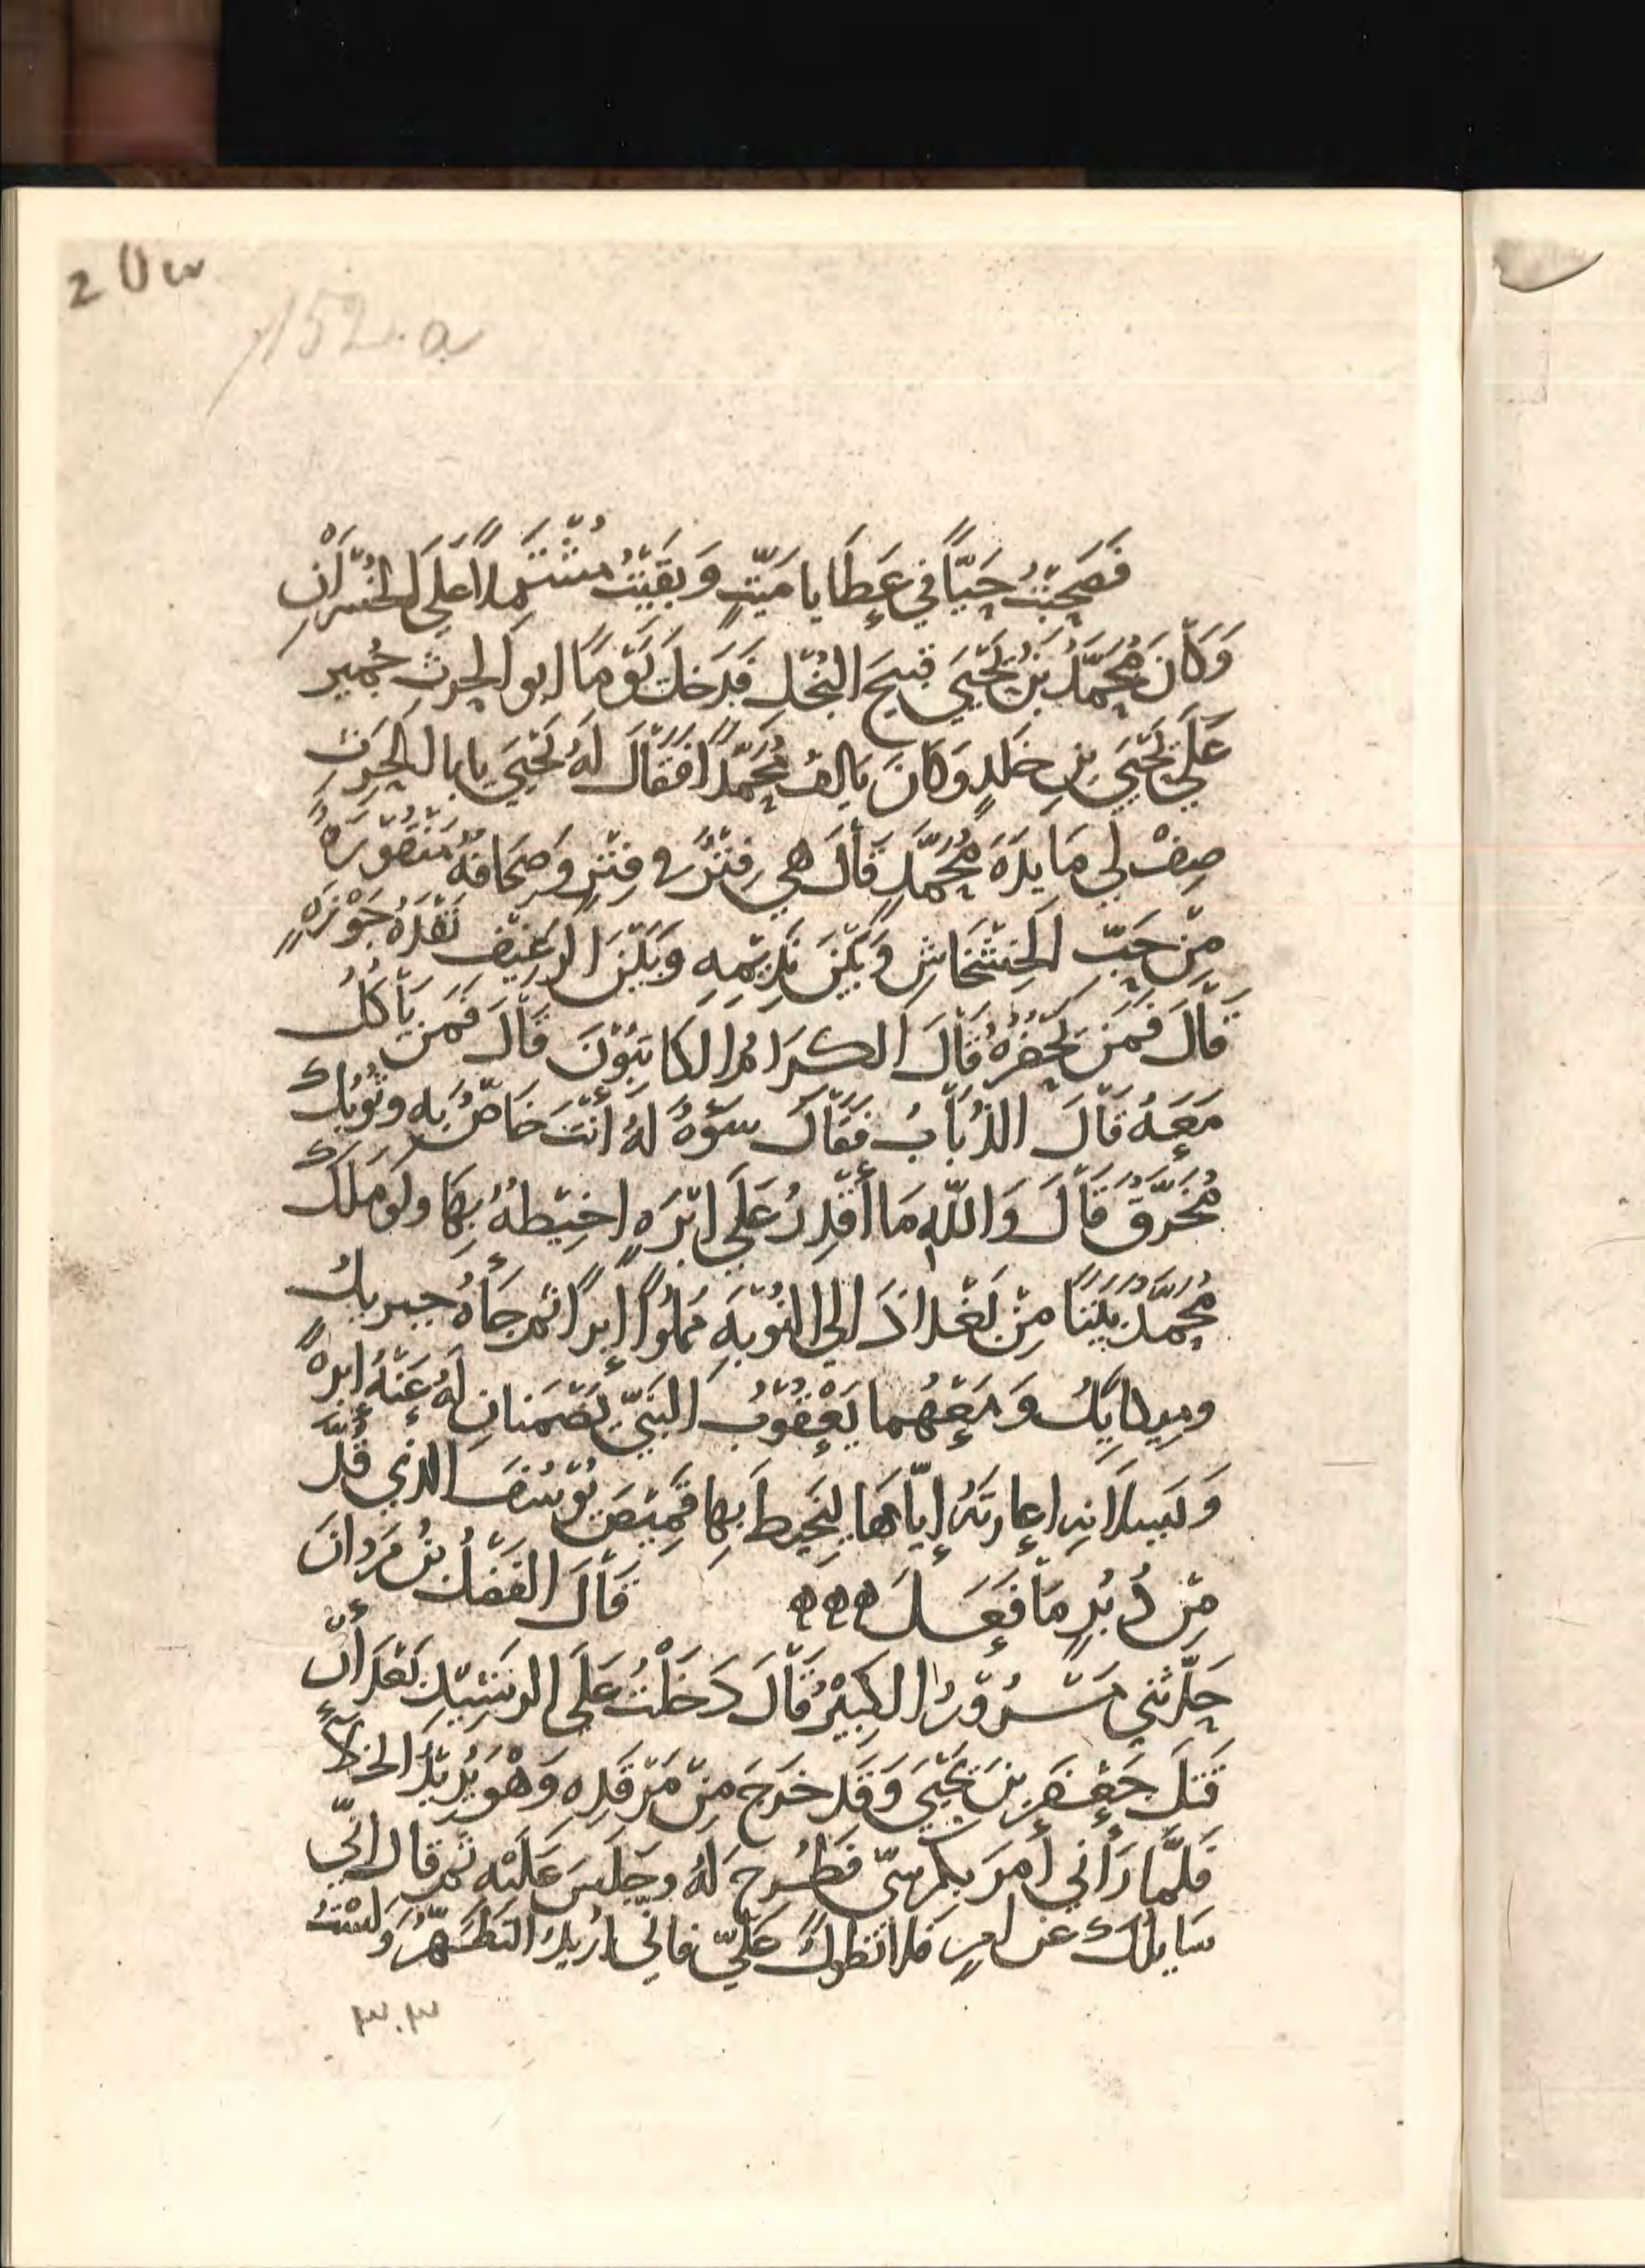 2 U w
152.a
فَصَحِبْتُ حَيًّا في عَطَايا مَيّتٍ وَبَقِيْتُ مُشْتَمِلاً عَلَى الخُسْرَانِ
وَكَانَ مُحَمَّدُ بْنُ يَحْيَي قبيحَ البُخْلِ فَدَخَلَ يَوْمًا ابو الحرثِ جُمير
عَلَي يَحْيَي بنِ خَلدٍ وَكَانَ يَالفُ مُحَمَّدًا فَقَالَ لَهُ يَحْيَي يا با الحرثِ
صِفْ لي مَايدَةَ مُحَمَّدٍ قَالَ هي فِتْرٌ في فِتْرٍ وَصِحَافهُ مَنْقُوْرَةٌ
مِنْ حَبّ الخَشْخَاشِ وَبَيْنَ نَدِيْمِهِ وَبَيْنَ الرَغِيْفِ نَقْدَهُ جَوْزَةٍ
قَالَ فَمَن يَحْضُرُهُ قَالَ الكرَامُ الكَاتِبُوْنَ قَالَ فَمَن يَأكُلُ
مَعَهُ قَالَ الذُبَابُ فَقَالَ سَوْءَةً لَهُ أنْتَ خَاصٌّ بِهِ وثَوْبُكَ
مُخَرَّقٌ قَالَ وَاللّهِ مَا أقْدِرُ عَلَى ابْرَةٍ اخِيْطهُ بِهَا ولو مَلَكَ
مُحَمَّدٌ بَيْتًا مِنْ بَغْدَاذَ الي النُوْبَةِ مَمْلُوًا إبرًا ثم جَاهُ جبريلُ
وميكايِيلُ وَمَعَهُما يَعْقُوْبُ النَبيّ يَضْمَنانِ لَهُ عَنْهُ إبرةً
وَيَسلانِهِ اعارتَهُ إيّاهَا لِيَخِيْطَ بِهَا قَمِيْصَ يُوْسُفَ الذي قُدَّ
مِنْ دُبُرٍ مَا فَعَلَ قَالَ الفَضْلُ بْنُ مَروانَ
حَدَّثني مَسْرُوْرٌ الكَبِيْرُ قَالَ دَخَلْتُ عَلَى الرَشِيْدِ بَعْدَ أنْ
قَتَلَ جَعْفَر بنَ يَحْيَي وَقَد خَرَجَ مِنْ مَرْقَدِهِ وَهْوَ يُرِيْدُ الخَلآءَ
فَلَمَّا رَآني أمَرَ بِكُرسيّ فَطُرحَ لَهُ وجَلَسَ عَلَيْهِ ثُم قالَ انّي
سَايلُكَ عن امرٍ فَلا تطولْ عَلَيّ فاني اُريدُ التَطَهُّرَ وَلَسْتُ
٣٠٣